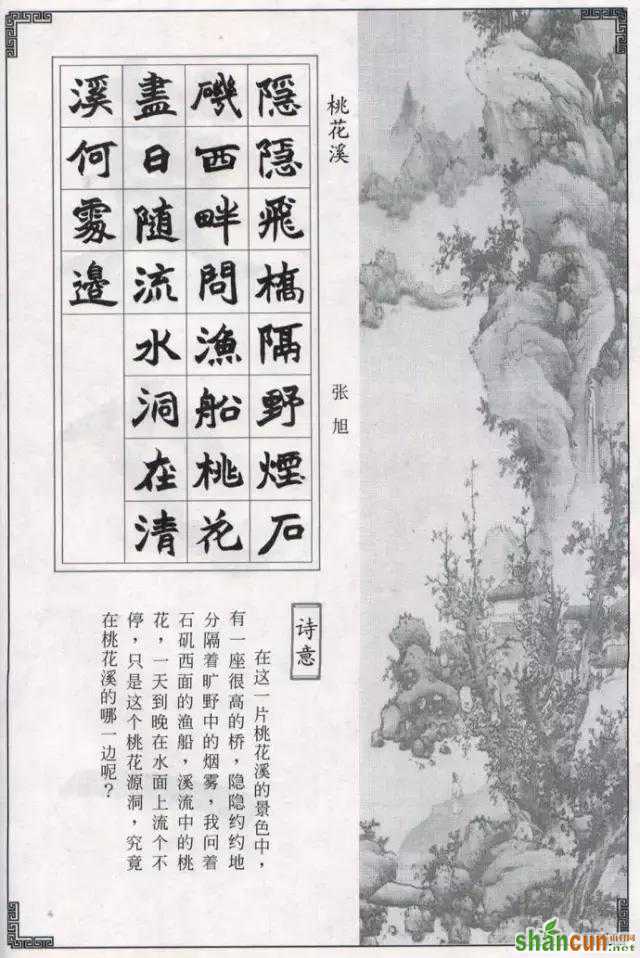 桃花溪
张旭
隱隱飛橋隔野煙石
磯西畔問漁船桃花
盡日隨流水洞在清
溪何處邊
诗意
在这一片桃花溪的景色中，
有一座很高的桥，隐隐约约地
分隔着旷野中的烟雾，我问着
石矶西面的渔船，溪流中的桃
花，一天到晚在水面上流个不
停，只是这个桃花源洞，究竟
在桃花溪的哪一边呢？
shancun
.net